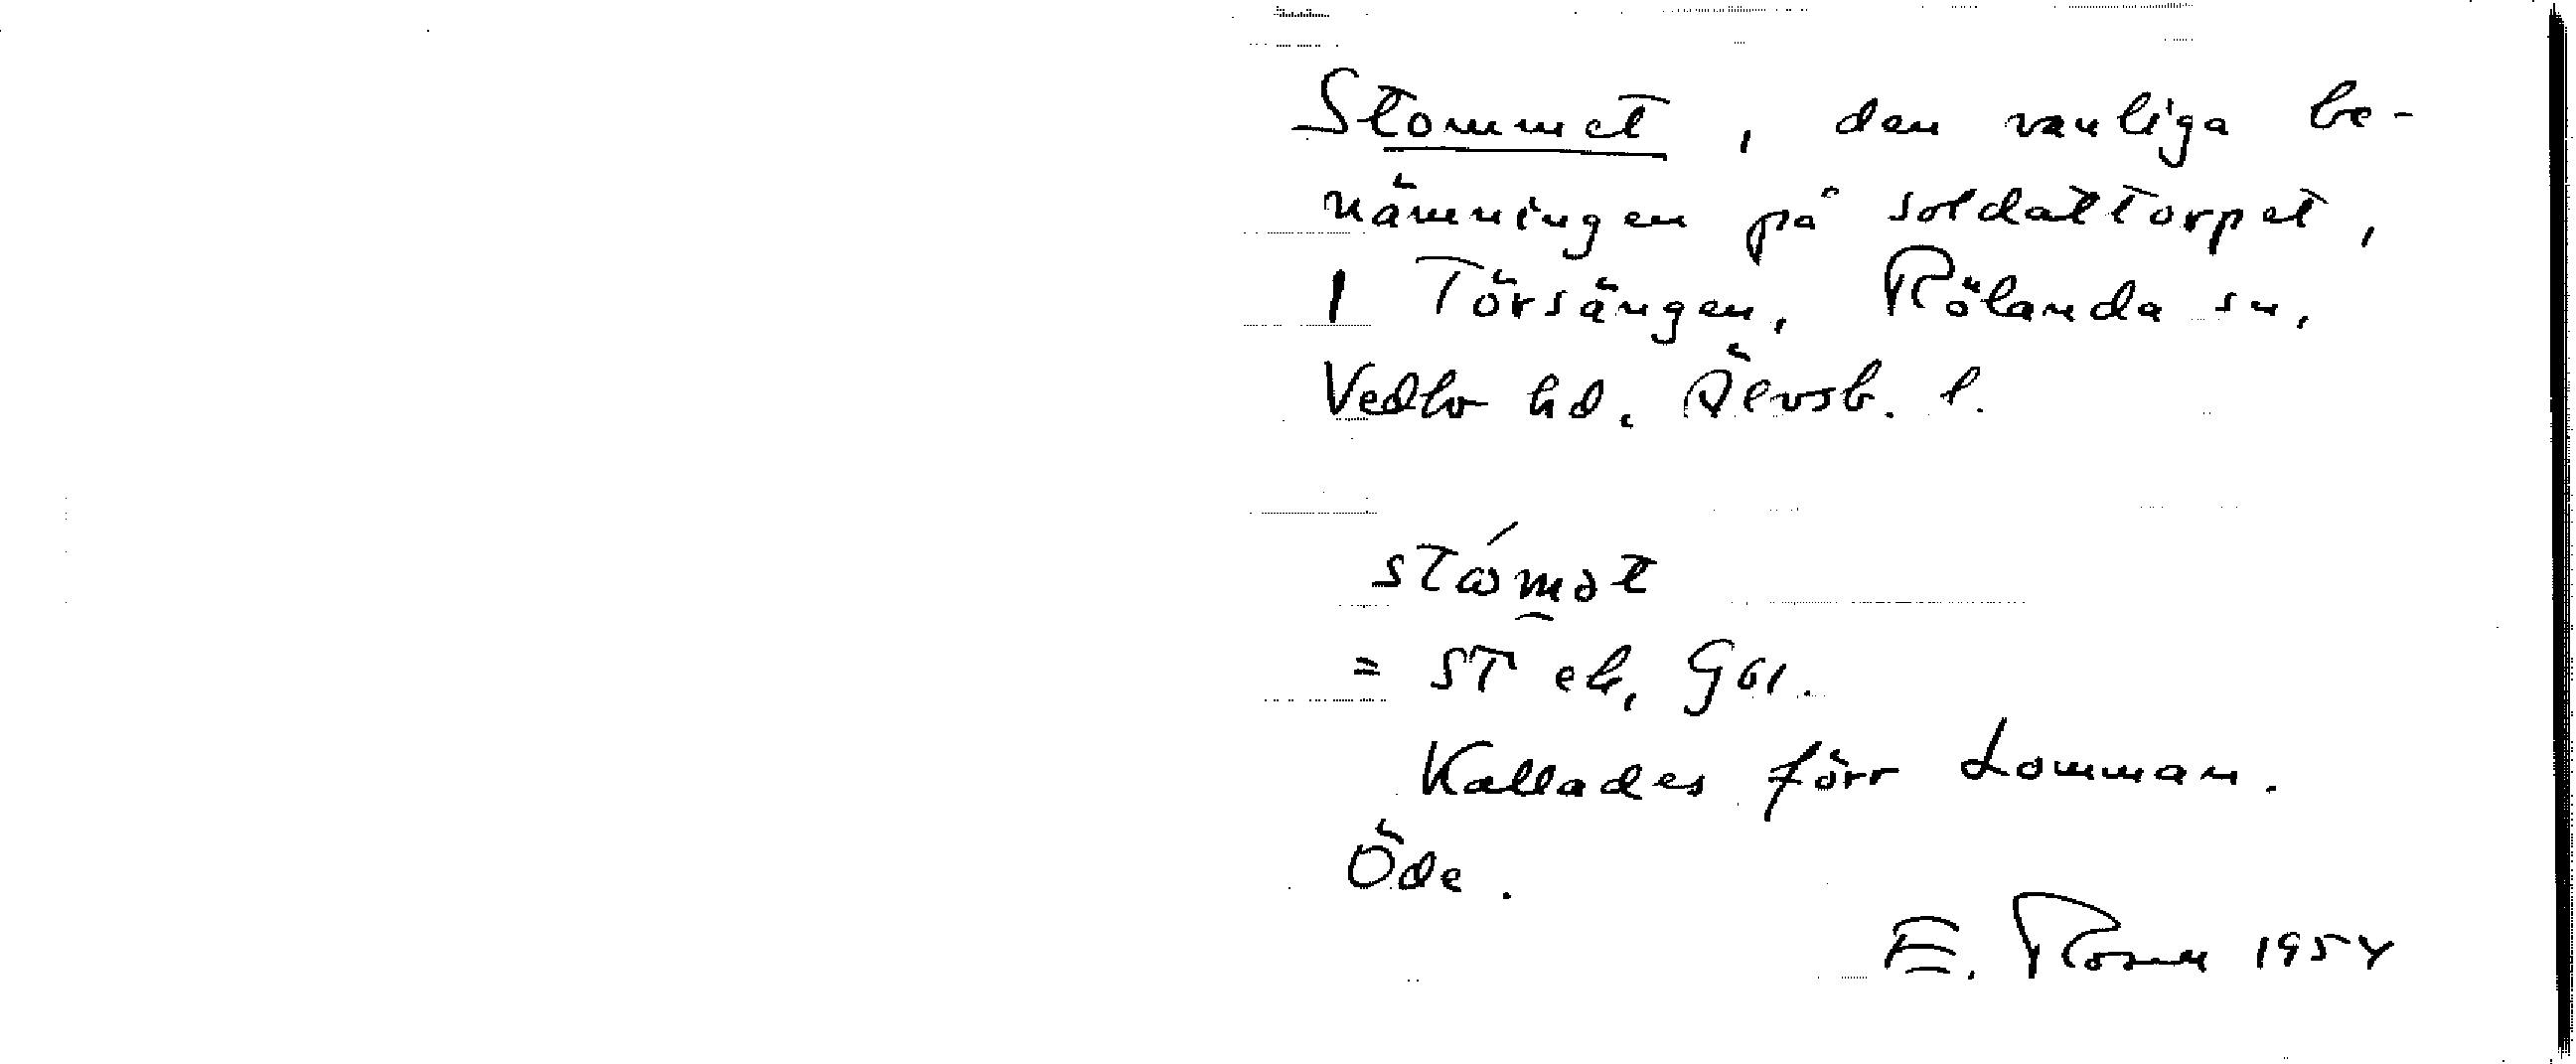 Stommet, den vanliga be-
nämningen på soldattorpet,
1 Törsängen, Rölanda sn,
Vedbo hd. Älvsb. l.
= ST ek, G61.
Kallades förr Lomman.
Öde.
E. Rosell 1954